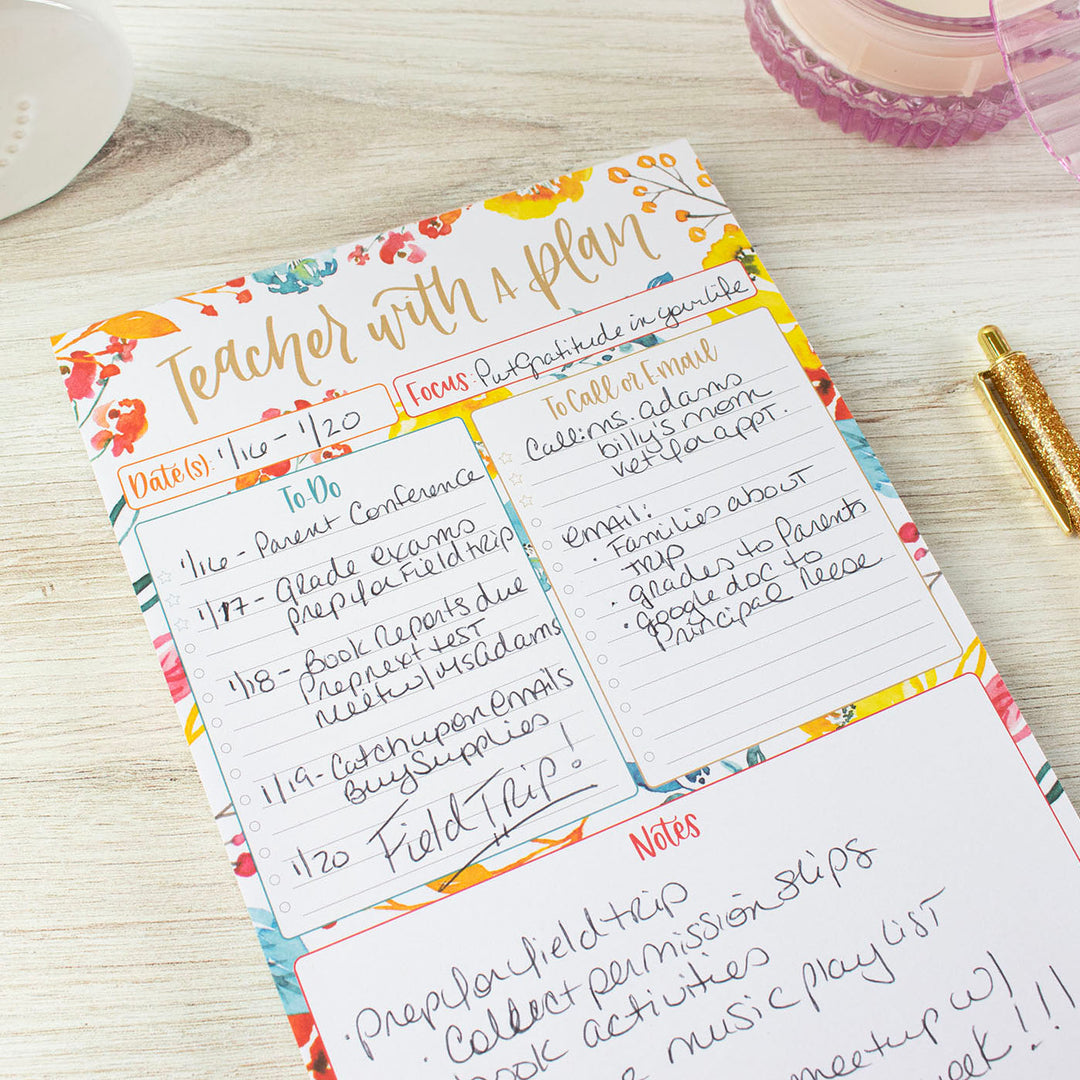 Teacher with A plan
Date(s): 1/16 - 1/20
Focus: Put Gratitude in your life
To-Do
1/16 - Parent Conference
1/17 - Grade exams
prep for Field trip
1/18 - Book Reports due
Prep next test
meet w/ Ms Adams
1/19 - Catch up on emails
Buy Supplies!
1/20 Field Trip
To Call or Email
Call: ms. adams
billy's mom
vet for appt.
email:
• Families about
Trip
• grades to Parents
• google doc to
Principal Reese
Notes
• prep for field trip
• Collect permission slips
book activities
music playlist
meetup w/
!!!